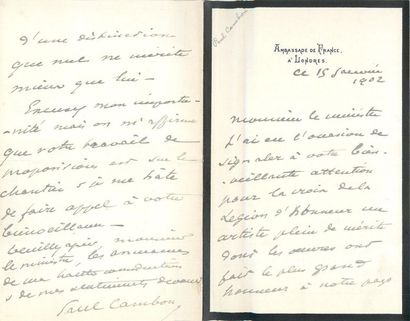 Paul Cambon
AMBASSADE DE FRANCE,
À LONDRES.
ce 15 Janvier
1902
Monsieur le ministre
J'ai eu l'occasion de
signaler à votre bien-
veillante attention
pour la croix de la
Légion d'Honneur un
artiste plein de mérite
dont les œuvres ont
fait le plus grand
honneur à notre pays
d'une distinction
que nul ne mérite
mieux que lui -
Excusez mon importu-
-nité mais on m'affirme
que votre travail de
propositions est sur le
chantier & je me hâte
de faire appel à votre
bienveillance -
Veuillez agréer, monsieur
le ministre, les assurances
de ma haute considération
& de mes sentiments dévoués
Paul Cambon